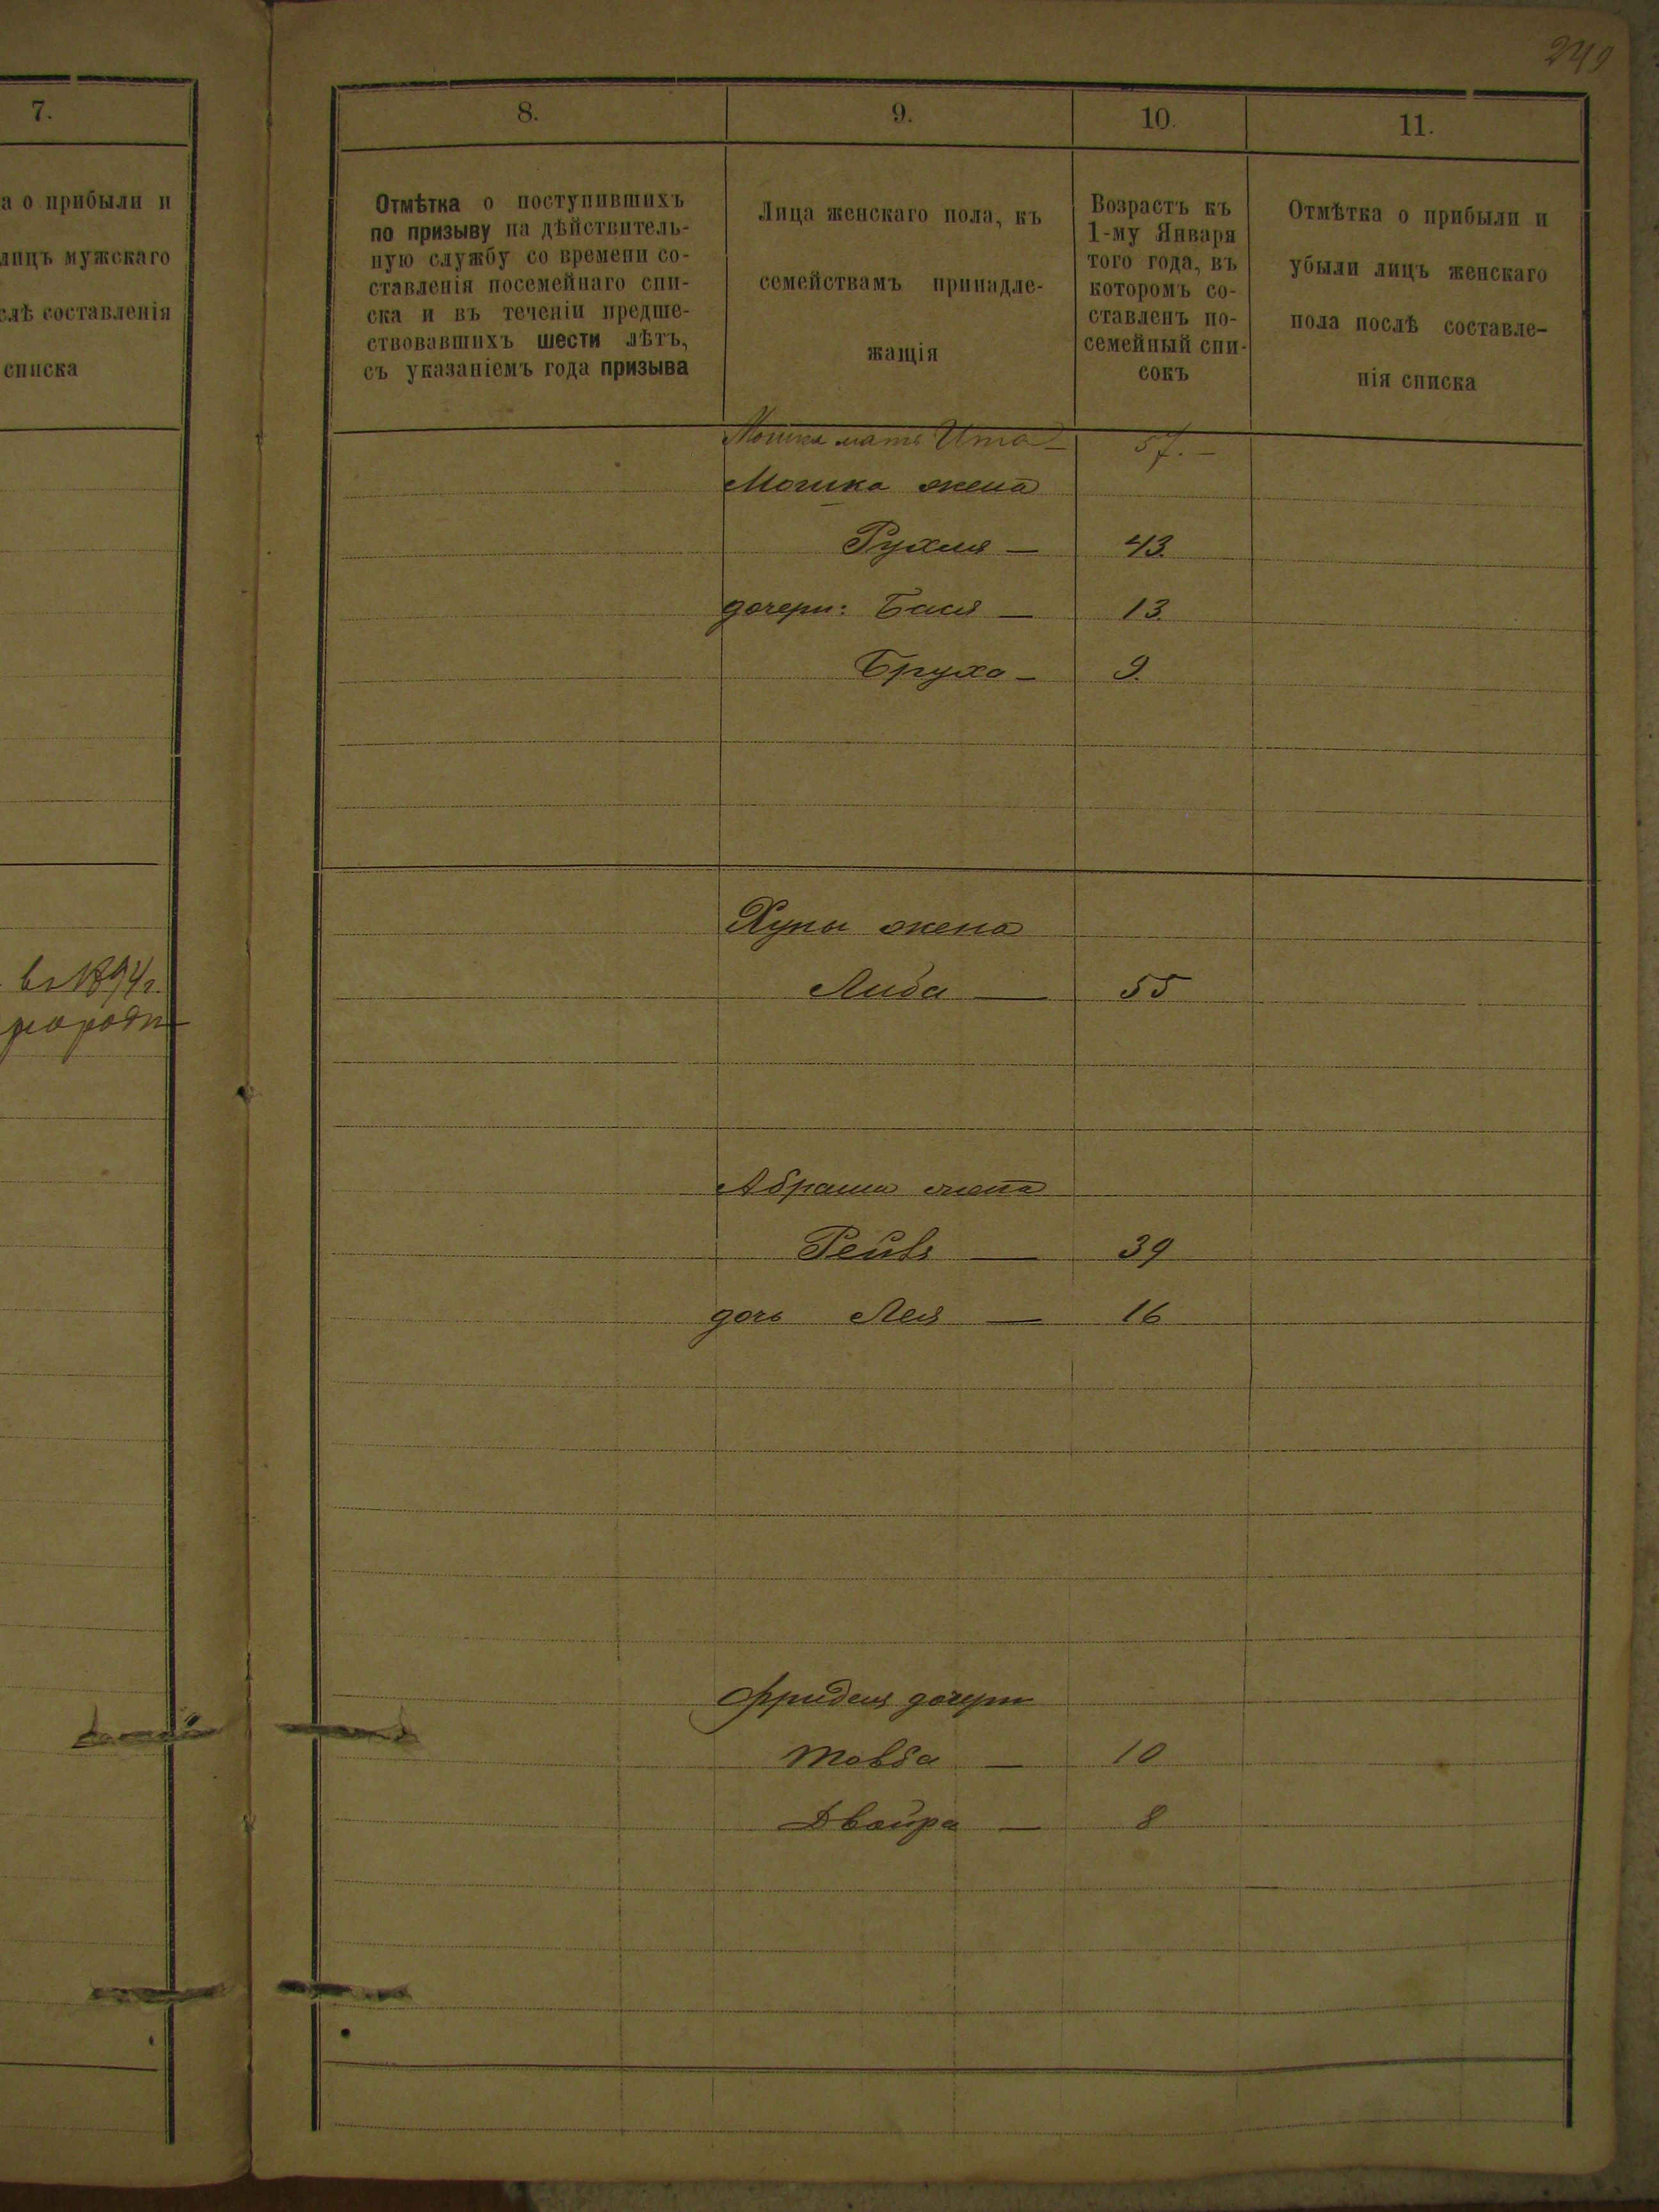 249
7.
а о прибыли и
лицъ мужскаго
слѣ составленія
списка
въ 1894 г.
8.
Отмѣтка о поступившихъ
по призыву на дѣйствитель-
ную службу со времени со-
ставленія посемейнаго спи-
ска и въ теченіи предше-
ствовавшихъ шести лѣтъ,
съ указаніемъ года призыва
9.
Лица женскаго пола, къ
семействамъ принадле-
жащія
10.
Возрастъ къ
1-му Января
того года, въ
которомъ со-
ставленъ по-
семейный спи-
сокъ
11.
Отмѣтка о прибыли и
убыли лицъ женскаго
пола послѣ составле-
нія списка
Мошка мать Ита — 57. —
Мошка жена
Рухля — 43.
дочери: Бася — 13.
Бруха — 9.
Хуны жена
Либа — 55
Абрама жена
Рейзя — 39
дочь Лея — 16
Фриделя дочери
Товба — 10
Двойра — 8